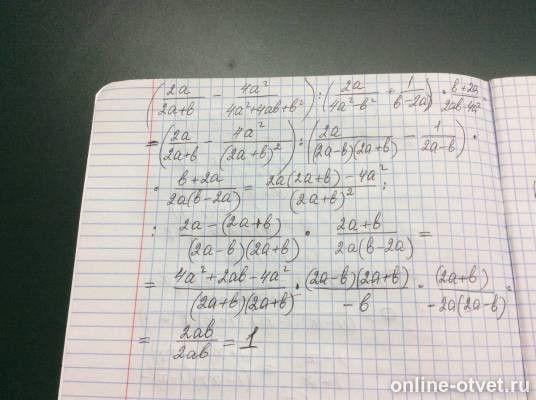 (2a/(2a+b) − 4a²/(4a²+4ab+b²)) : (2a/(4a²−b²) + 1/(b−2a)) · (b+2a)/(2ab−4a²)
= (2a/(2a+b) − 4a²/(2a+b)²) : (2a/((2a−b)(2a+b)) − 1/(2a−b)) ·
· (b+2a)/(2a(b−2a)) = (2a(2a+b)−4a²)/(2a+b)² :
: (2a−(2a+b))/((2a−b)(2a+b)) · (2a+b)/(2a(b−2a)) =
= (4a²+2ab−4a²)/((2a+b)(2a+b)) · ((2a−b)(2a+b))/(−b) · (2a+b)/(−2a(2a−b)) =
= 2ab/2ab = 1
online-otvet.ru